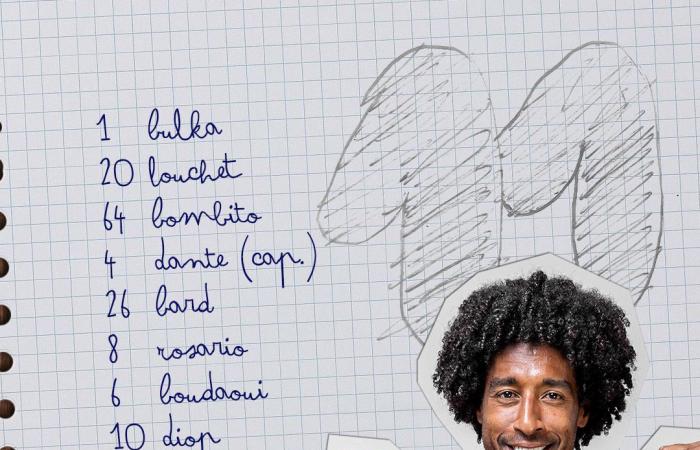 11
1 bulka
20 louchet
64 bombito
4 dante (cap.)
26 bard
8 rosario
6 boudaoui
10 diop